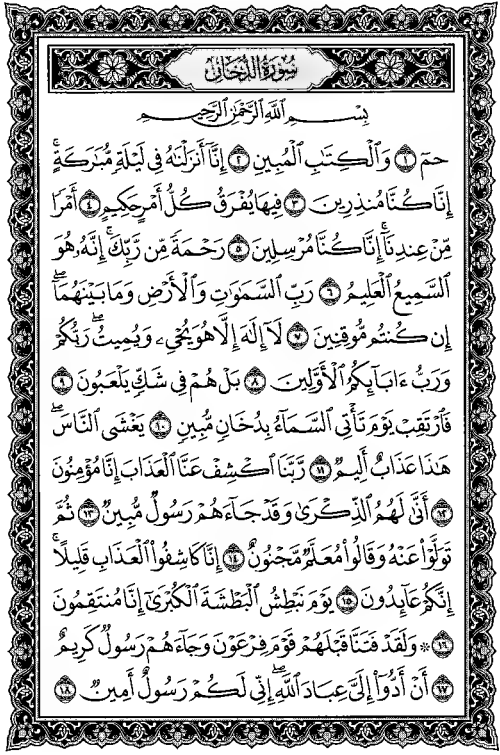 سُورَةُ الدُّخَانِ
بِسْمِ اللَّهِ الرَّحْمَٰنِ الرَّحِيمِ
حمٓ ١ وَالْكِتَٰبِ الْمُبِينِ ٢ إِنَّا أَنزَلْنَٰهُ فِي لَيْلَةٍ مُّبَٰرَكَةٍ ۚ
إِنَّا كُنَّا مُنذِرِينَ ٣ فِيهَا يُفْرَقُ كُلُّ أَمْرٍ حَكِيمٍ ٤ أَمْرًا
مِّنْ عِندِنَا ۚ إِنَّا كُنَّا مُرْسِلِينَ ٥ رَحْمَةً مِّن رَّبِّكَ ۚ إِنَّهُ هُوَ
السَّمِيعُ الْعَلِيمُ ٦ رَبِّ السَّمَٰوَٰتِ وَالْأَرْضِ وَمَا بَيْنَهُمَا ۖ
إِن كُنتُم مُّوقِنِينَ ٧ لَا إِلَٰهَ إِلَّا هُوَ يُحْيِۦ وَيُمِيتُ ۖ رَبُّكُمْ
وَرَبُّ ءَابَآئِكُمُ الْأَوَّلِينَ ٨ بَلْ هُمْ فِي شَكٍّ يَلْعَبُونَ ٩
فَارْتَقِبْ يَوْمَ تَأْتِي السَّمَآءُ بِدُخَانٍ مُّبِينٍ ١٠ يَغْشَى النَّاسَ ۖ
هَٰذَا عَذَابٌ أَلِيمٌ ١١ رَّبَّنَا اكْشِفْ عَنَّا الْعَذَابَ إِنَّا مُؤْمِنُونَ
١٢ أَنَّىٰ لَهُمُ الذِّكْرَىٰ وَقَدْ جَآءَهُمْ رَسُولٌ مُّبِينٌ ١٣ ثُمَّ
تَوَلَّوْا عَنْهُ وَقَالُوا مُعَلَّمٌ مَّجْنُونٌ ١٤ إِنَّا كَاشِفُوا الْعَذَابِ قَلِيلًا ۚ
إِنَّكُمْ عَآئِدُونَ ١٥ يَوْمَ نَبْطِشُ الْبَطْشَةَ الْكُبْرَىٰٓ إِنَّا مُنتَقِمُونَ
١٦ ۞ وَلَقَدْ فَتَنَّا قَبْلَهُمْ قَوْمَ فِرْعَوْنَ وَجَآءَهُمْ رَسُولٌ كَرِيمٌ
١٧ أَنْ أَدُّوٓا إِلَيَّ عِبَادَ اللَّهِ ۖ إِنِّي لَكُمْ رَسُولٌ أَمِينٌ ١٨